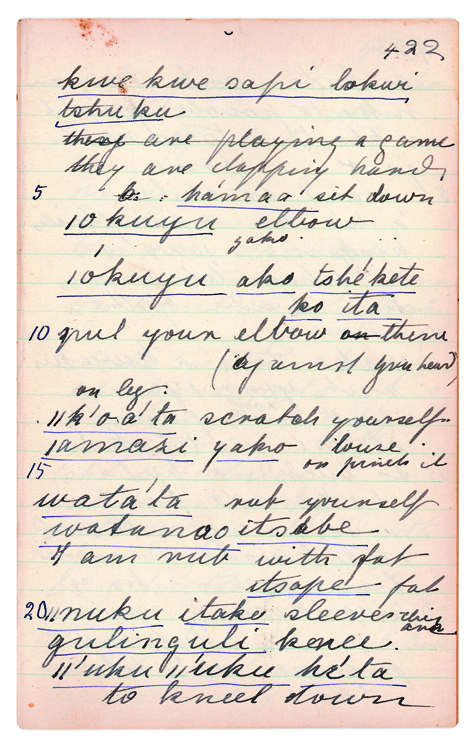 422
kwe kwe sapi lokwi
tshuku
they are playing a game
they are clapping hands
5 b: : hámaa sit down
1okuyu elbow
yako
1ókuyu ako tshékete
ko ita
10 put your elbow on there
(against your head)
on leg.
ǁk'o-a'ta scratch yourself
1amazi yako louse
15 on pinch it
watá'ta rub yourself
watanao itsabe
I am rub with fat
itsape fat
20 ǁnuku itako sleeves
gulinguli knee.
ǁ'uku ǁ'uku hé'ta
to kneel down